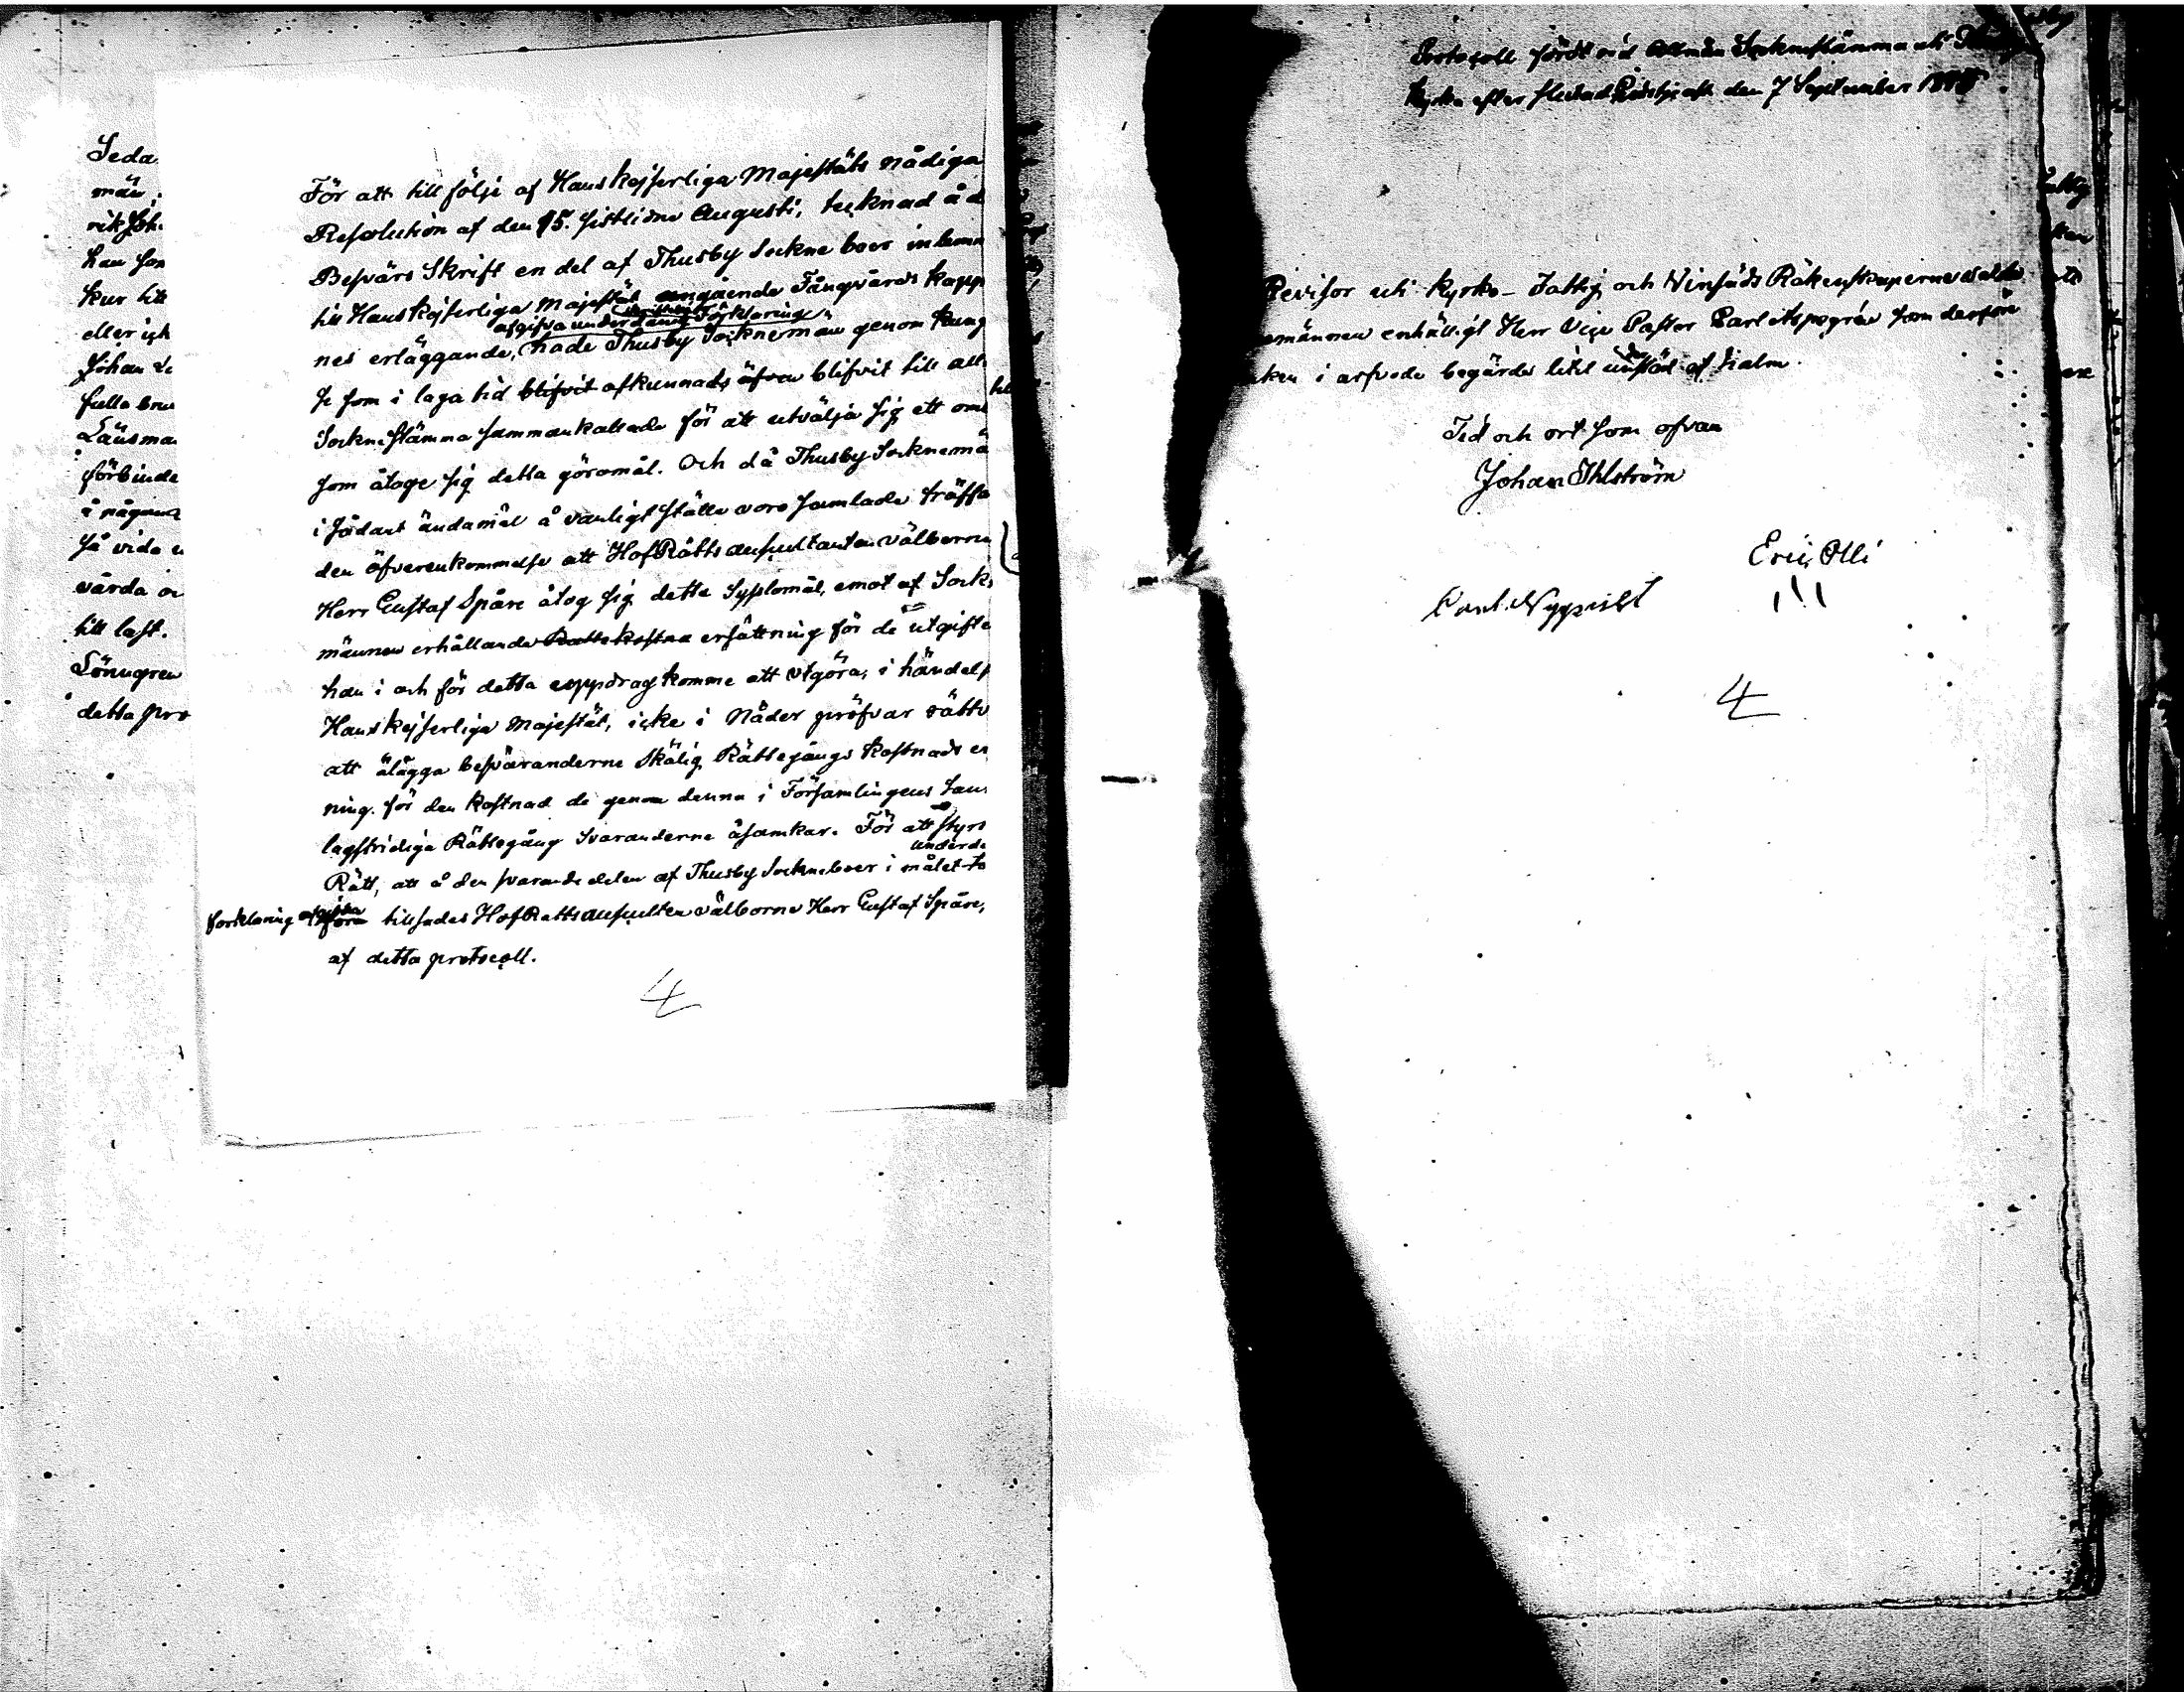 Seda
män
rik Joh
han som
kur till
eller ick
Johan
fulla bru
Länsma
förbinde
i någon
så vida
vårda oc
till last.
Lönngren
detta pro
För att till följe af Hans kejserliga Majestäts nådiga
Resolution af den 15. sistledne Augusti, tecknad å d
Besvärs Skrift en del af Thusby Sockne boer inlemn
till Hans kejserliga Majestät angående Fångvårds kapp
afgifva underdånig Förklaring
nes erläggande, hade Thusby Socknemän genom kung
se som i laga tid blifvit afkunnads äfven blifvit till all
Sockne stämma sammankallade för att utvälja sig ett om
som åtoge sig detta göromål. Och då Thusby Socknemä
i sådant ändamål å vanligt ställe voro samlade träffa
den öfverenkommelse att HofRätts auscultanten välborne
Herr Gustaf Spåre åtog sig detta Sysslomål, emot af Sock
männen erhållande Rattekostna ersättning för de utgifte
han i och för detta uppdrag komme att utgöra, i händels
Hans kejserliga Majestät, icke i Nåder pröfvar rättv
att ålägga besväranderne Skälig Rättegångs kostnads er
ning för den kostnad de genom denna i Församlingens
lagstridiga Rättegång Svaranderne åsamkar. För att styrs
underdå
Rätt, att å den svarande delen af Thusby Sockneboer i målet
förklaring afgifva föra tillsades HofRatts auscultan välborne Herr Gustaf Spåre,
af detta protocoll.
4
Protocoll fördt vid Allmän Sockenstämma uti Thusby
kyrka efter slutad Gudstjenst den 7 September
Revisor uti kyrko- Fattig och Vinsäds Räkenskaperne valde
männen enhälligt Herr Vice Pastor Carl Aspegrén som derföre
i arfvode begärde litet understöd af halm.
Tid och ort som ofvan
Johan Ihlström
Eric Olli
Carl Nyqvist
4